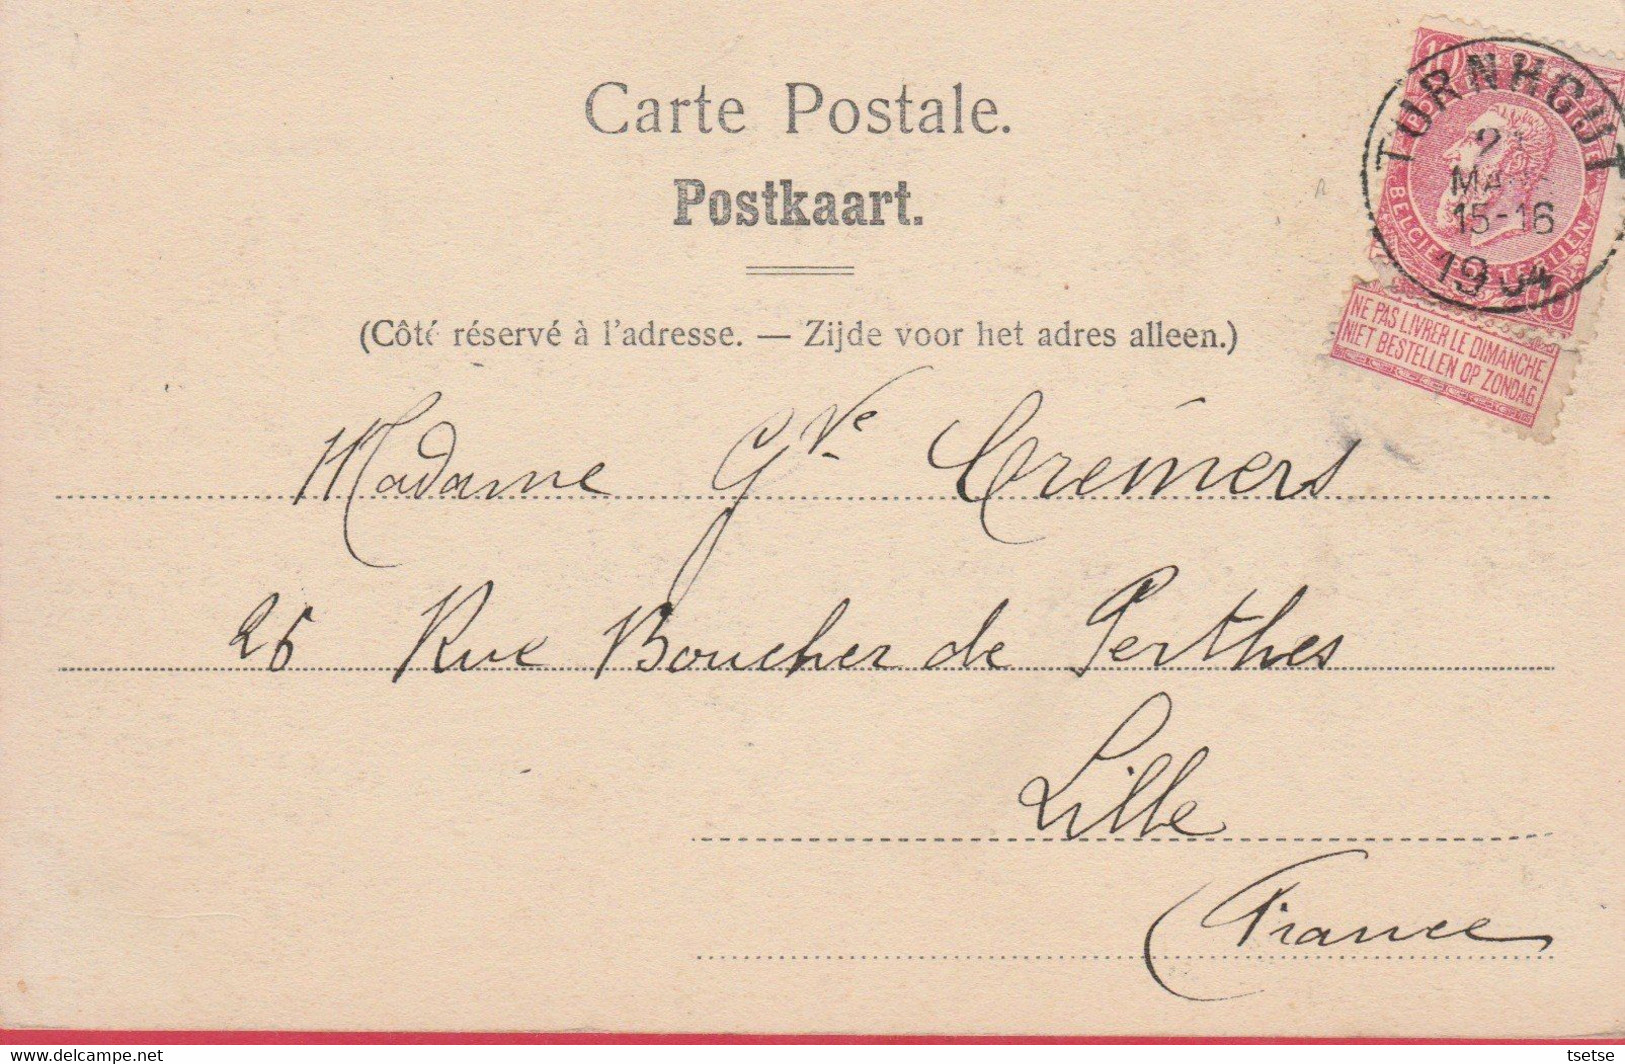 Carte Postale.
Postkaart.
(Côté réservé à l'adresse. — Zijde voor het adres alleen.)
10
TURNHOUT
MA
15-16
1904
NE PAS LIVRER LE DIMANCHE.
NIET BESTELLEN OP ZONDAG
Madame Gve Cremers
26 Rue Boucher de Perthes
Lille
France
www.delcampe.net
tsetse